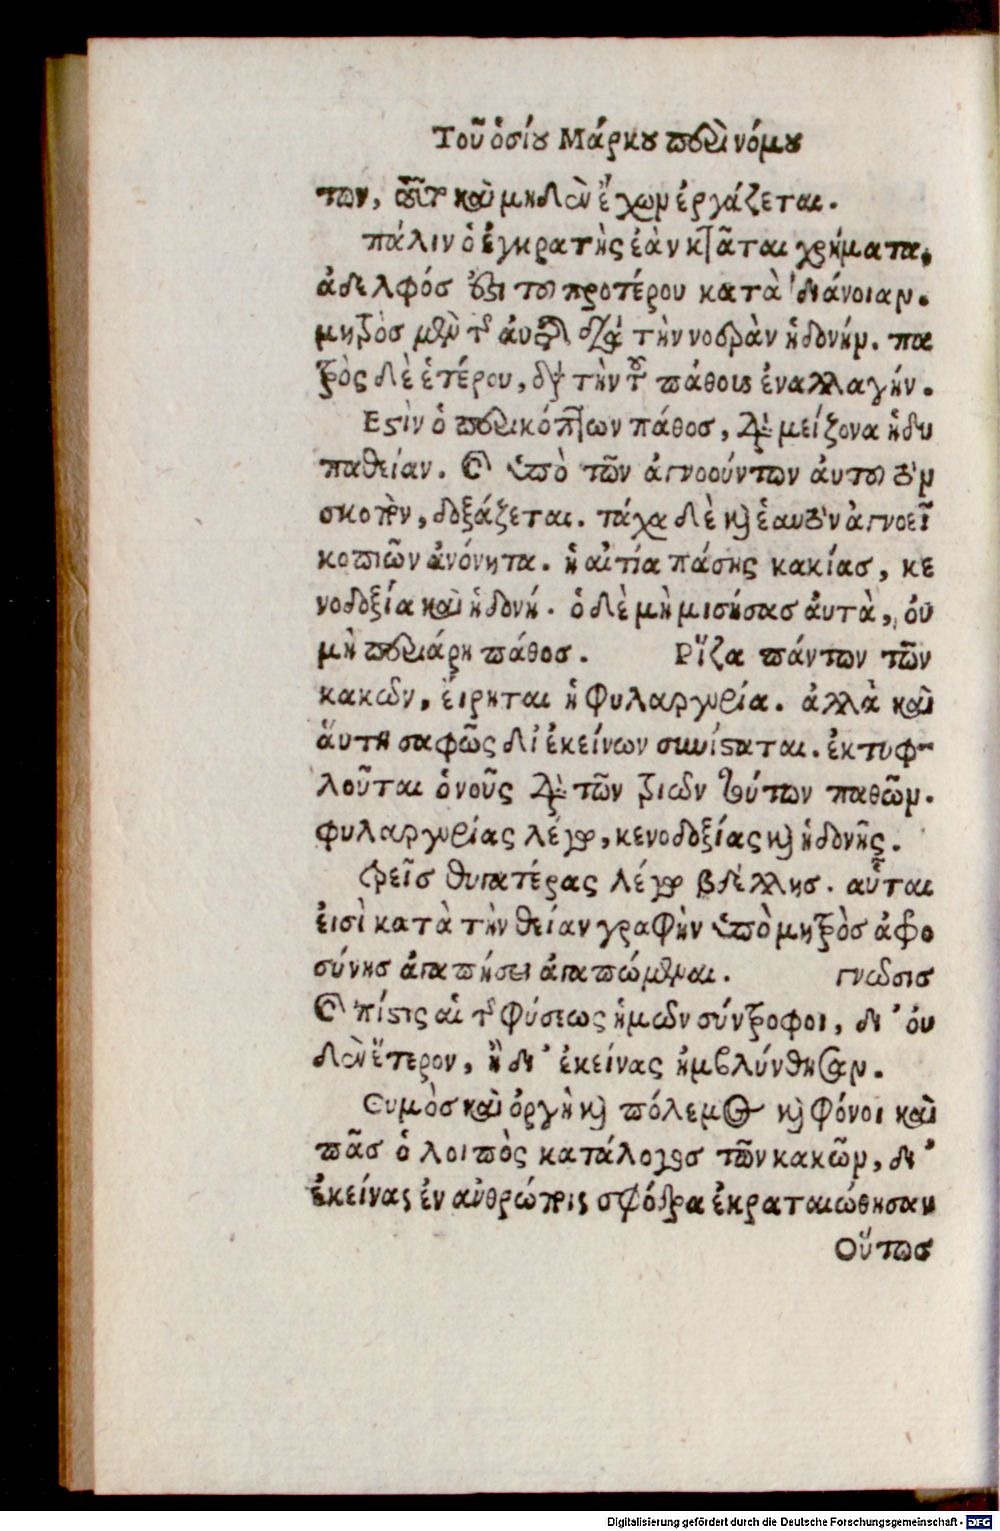 Τοῦ ὁσίου Μάρκου περὶ νόμου
των, ὅταν καὶ μηδὲν ἔχων ἐργάζεται.
πάλιν ὁ ἐγκρατὴς ἐὰν κτᾶται χρήματα,
ἀδελφός ἐστι τοῦ προτέρου κατὰ διάνοιαν.
μητρὸς μὲν τῆς αὐτῆς διὰ τὴν νοερὰν ἡδονήν. πα
τρὸς δὲ ἑτέρου, διὰ τὴν τοῦ πάθους ἐναλλαγήν.
Εστὶν ὁ περικόπτων πάθος, διὰ μείζονα ἡδυ
παθείαν. καὶ ὑπὸ τῶν ἀγνοούντων αὐτοῦ τὸν
σκοπὸν, δοξάζεται. τάχα δὲ καὶ ἑαυτὸν ἀγνοεῖ
κοπιῶν ἀνόνητα. ἡ αἰτία πάσης κακίας, κε
νοδοξία καὶ ἡδονή. ὁ δὲ μὴ μισήσας ἀυτὰ, οὐ
μὴ περιάρη πάθος. Ρἵζα πάντων τῶν
κακῶν, ἔιρηται ἡ φυλαργυρία. ἀλλὰ καὶ
ἅυτη σαφῶς δι ἐκείνων συνίσταται. ἐκτυφ-
λοῦται ὁ νοῦς διὰ τῶν τριῶν τούτων παθῶν.
φυλαργυρίας λέγω, κενοδοξίας καὶ ἡδονῆς.
τρεῖς θυγατέρας λέγω βδέλλης. αὗται
ἐισὶ κατὰ τὴν θείαν γραφὴν ὑπὸ μητρὸς ἀφρο
σύνης ἀγαπήσει ἀγαπώμεναι. γνῶσις
καὶ πίστις αἱ τῆς φύσεως ἡμῶν σύντροφοι, δι' ὀυ
δὲν ἕτερον, ἢ δι' ἐκείνας ἠμβλύνθησαν.
Θυμὸς καὶ ὀργὴ καὶ πόλεμος καὶ φόνοι καὶ
πᾶς ὁ λοιπὸς κατάλογος τῶν κακῶν, δι'
ἐκείνας ἐν ἀνθρώποις σφόδρα ἐκραταιώθησαν
Οὕτως
Digitalisierung gefördert durch die Deutsche Forschungsgemeinschaft - DFG